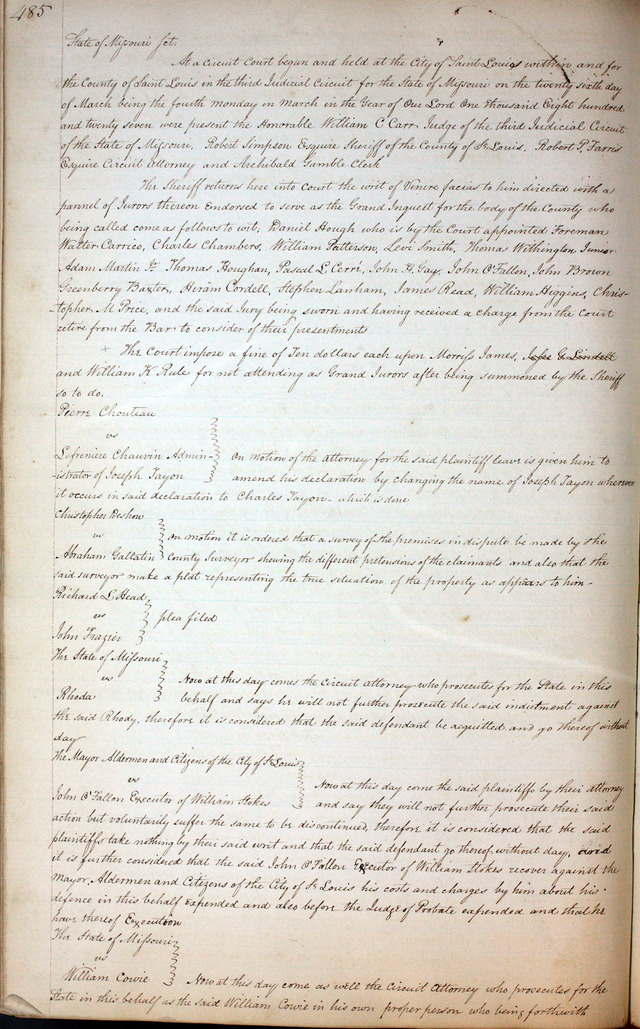 485
State of Missouri sct.
At a Circuit Court begun and held at the City of Saint Louis within and for
the County of Saint Louis in the third Judicial Circuit for the State of Missouri on the twenty sixth day
of March being the fourth monday in March in the Year of Our Lord One thousand Eight hundred
and twenty seven were present the Honorable William C Carr Judge of the third Judicial Circuit
of the State of Missouri, Robert Simpson Esquire Sheriff of the County of St. Louis. Robert P. Farris
Esquire Circuit Attorney and Archibald Gamble Clerk
The Sheriff returns here into Court the writ of Venire facias to him directed with a
pannel of Jurors thereon Endorsed to serve as the Grand Inquest for the body of the County who
being called come as follows to wit; Daniel Hough who is by the Court appointed Foreman
Walter Carrico, Charles Chambers, William Patterson, Levi Smith, Thomas Withington Junior
Adam Martin Jr Thomas Houghan, Pascal L. Cerri, John H. Gay, John O'Fallon, John Brown
Greenberry Baxter, Hiram Cordell, Stephen Lanham, James Read, William Higgins, Chris-
-topher. M Price, and the said Jury being sworn and having received a charge from the Court
retire from the Bar to consider of their presentments
The Court impose a fine of Ten dollars each upon Morriss James, Jesse G Lindell
and William K Rule for not attending as Grand Jurors after being summoned by the Sheriff
so to do.
Pierre Chouteau
vs
Lefreniere Chauvin Admin-
-istrator of Joseph Tayon
On motion of the attorney for the said plaintiff leave is given him to
amend his declaration by changing the name of Joseph Tayon wherever
it occurs in said declaration to Charles Tayon - which is done
Christopher Deshon
vs
Abraham Gallatin
On motion it is ordered that a survey of the premises in dispute be made by the
County Surveyor shewing the different pretensions of the claimants and also that the
said surveyor make a platt representing the true situation of the property as appears to him -
Richard L. Head
vs
John Frazier
plea filed
The State of Missouri
vs
Rhoda
Now at this day comes the Circuit attorney who prosecutes for the State in this
behalf and says he will not further prosecute the said indictment against
the said Rhody, therefore it is considered that the said defendant be acquitted and go thereof without
day
The Mayor Aldermen and Citizens of the City of St Louis
vs
John O'Fallon Executor of William Stokes
Now at this day come the said plaintiffs by their attorney
and say they will not further prosecute their said
action but voluntarily suffer the same to be discontinued, therefore it is considered that the said
plaintiffs take nothing by their said writ and that the said defendant go thereof without day. and
it is further considered that the said John O'Fallon Executor of William Stokes recover against the
Mayor, Aldermen and Citizens of the City of St Louis his costs and charges by him about his
defence in this behalf expended and also before the Judge of Probate expended and that he
have thereof Execution
The State of Missouri
vs
William Cowie
Now at this day come as well the Circuit Attorney who prosecutes for the
State in this behalf as the said William Cowie in his own proper person who being forthwith